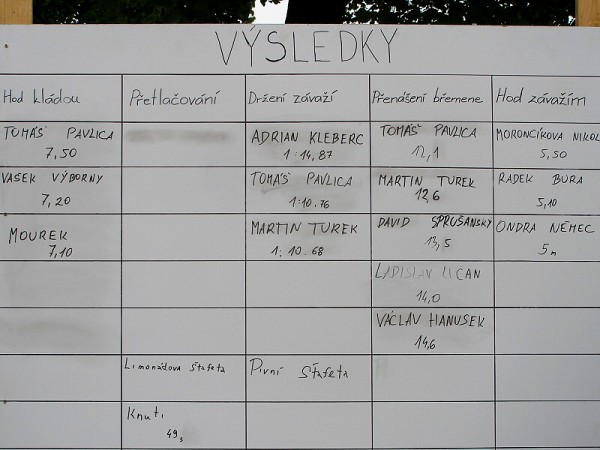 VÝSLEDKY
Hod kládou
Přetlačování
Držení závaží
Přenášení břemene
Hod závažím
TOMÁŠ PAVLICA
7,50
ADRIAN KLEBERC
1:14,87
TOMÁŠ PAVLICA
12,1
MORONCÍKOVA NIKOL
5,50
VAŠEK VÝBORNY
7,20
TOMÁŠ PAVLICA
1:10.76
MARTIN TUREK
12,6
RADEK BURA
5,10
MOUREK
7,10
MARTIN TUREK
1:10.68
DAVID SPRUŠANSKY
13,5
ONDRA NĚMEC
5m
LADISLAV
14,0
VÁCLAV HANUSEK
14,6
Limonádova štafeta
Pivní štafeta
Knuti
49s